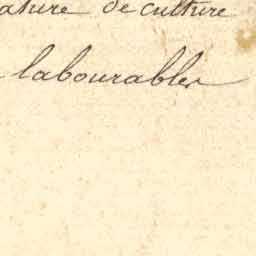 ature de culture
labourables